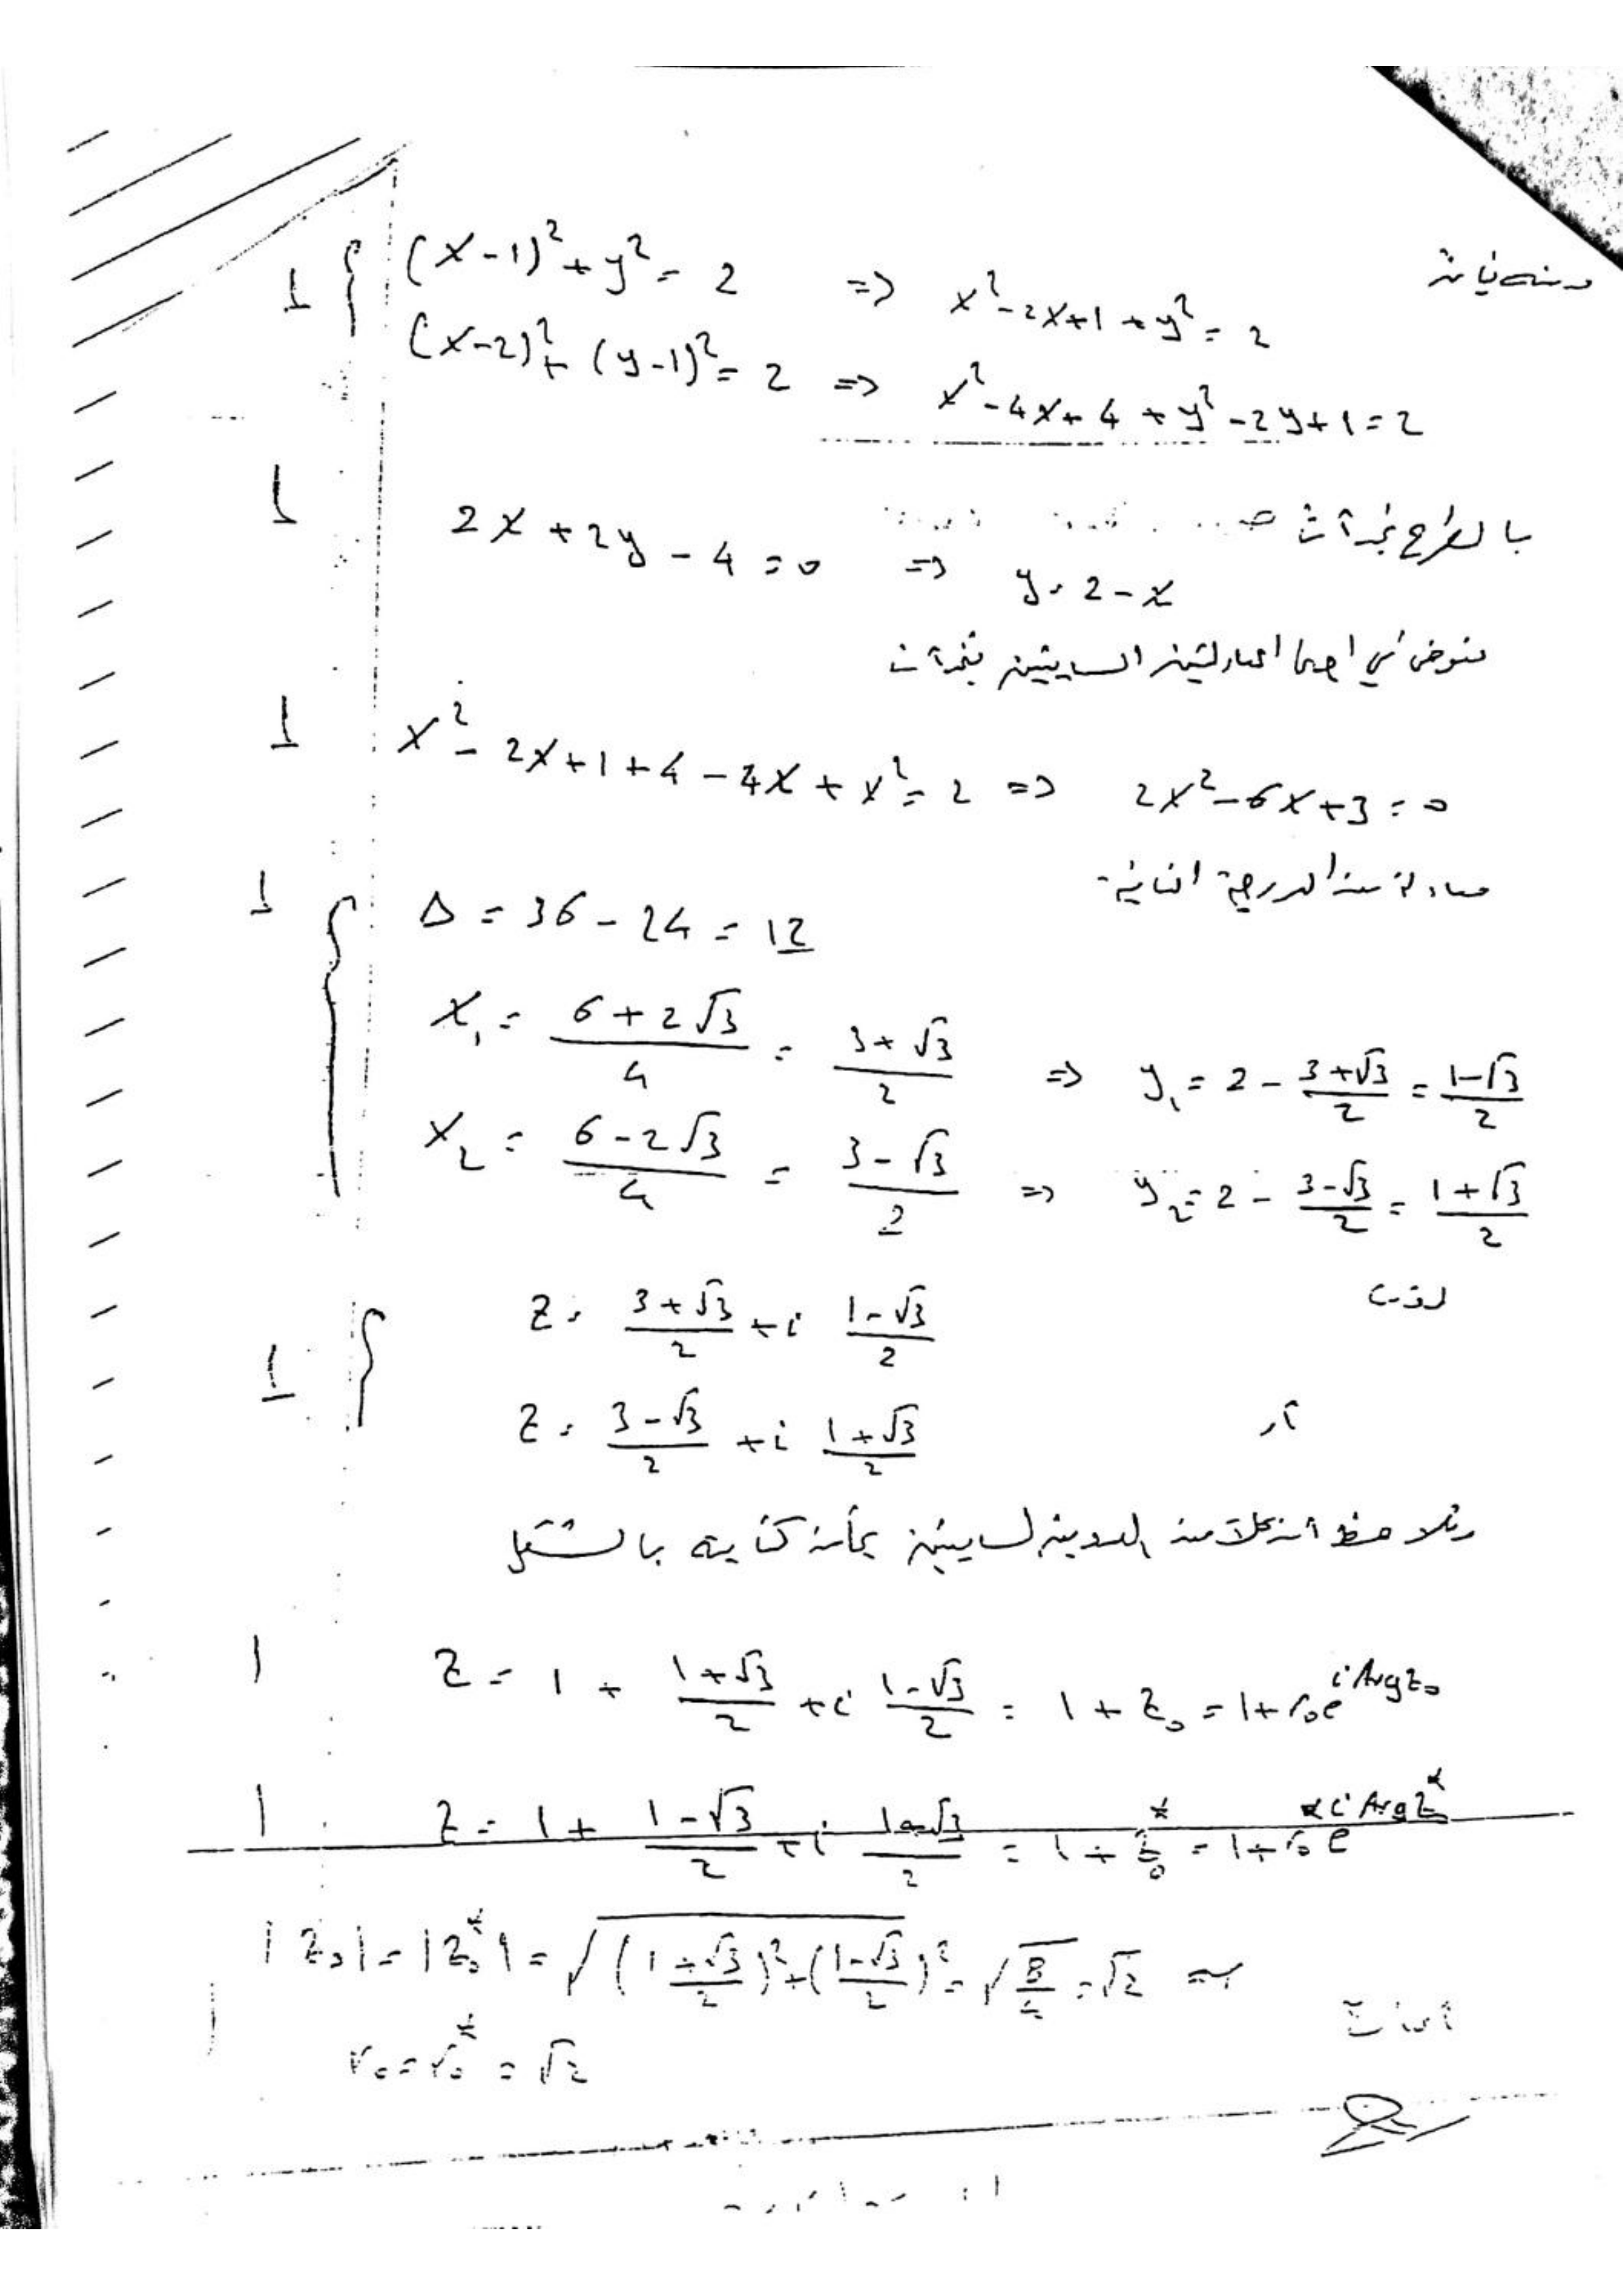 ومنه فإن
1 { (x-1)² + y² = 2 => x² - 2x + 1 + y² = 2
(x-2)² + (y-1)² = 2 => x² - 4x + 4 + y² - 2y + 1 = 2
بالطرح نجد أن
1 2x + 2y - 4 = 0 => y = 2 - x
نعوض في احدى المعادلتين السابقتين نجد أن
1 x² - 2x + 1 + 4 - 4x + x² = 2 => 2x² - 6x + 3 = 0
معادلة من الدرجة الثانية
1 { Δ = 36 - 24 = 12
x₁ = (6 + 2√3)/4 = (3 + √3)/2 => y₁ = 2 - (3 + √3)/2 = (1 - √3)/2
x₂ = (6 - 2√3)/4 = (3 - √3)/2 => y₂ = 2 - (3 - √3)/2 = (1 + √3)/2
1 { z = (3 + √3)/2 + i (1 - √3)/2
أو
z = (3 - √3)/2 + i (1 + √3)/2
ونلاحظ أن كلا من العددين السابقين يمكن كتابته بالشكل
1 z = 1 + (1 + √3)/2 + i (1 - √3)/2 = 1 + z₀ = 1 + r₀ e^{i Arg z₀}
1 z = 1 + (1 - √3)/2 + i (1 + √3)/2 = 1 + z₀* = 1 + r₀* e^{i Arg z₀*}
|z₀| = |z₀*| = √(((1 + √3)/2)² + ((1 - √3)/2)²) = √(8/4) = √2 =>
1 r₀ = r₀* = √2